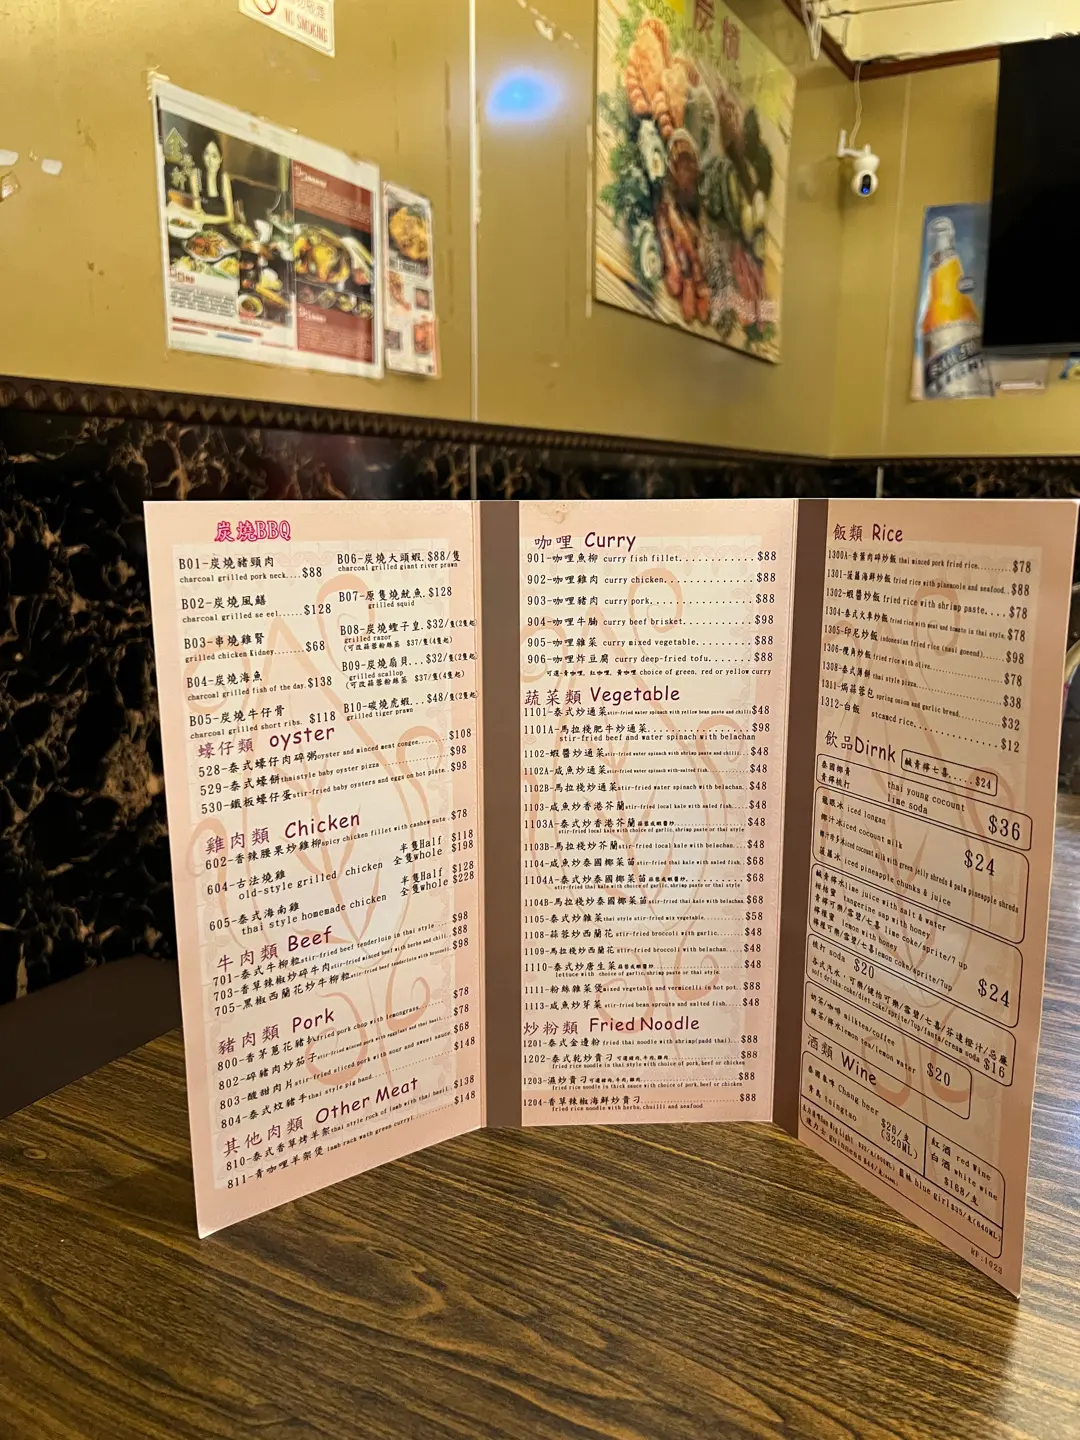 NO SMOKING
炭燒BBQ
B01-炭燒豬頸肉
charcoal grilled pork neck....$88
B02-炭燒風鱔
charcoal grilled se eel......$128
B03-串燒雞腎
grilled chicken Kidney.......$68
B04-炭燒海魚
charcoal grilled fish of the day.$138
B05-炭燒牛仔骨
charcoal grilled short ribs. $118
B06-炭燒大頭蝦.$88/隻
charcoal grilled giant river prawn
B07-原隻燒魷魚.$128
grilled squid
B08-炭燒蟶子皇.$32/隻(2隻起)
grilled razor
(可改蒜蓉粉絲蒸 $37/隻(4隻起)
B09-炭燒扇貝...$32/隻(2隻起)
grilled scallop
(可改蒜蓉粉絲蒸 $37/隻(4隻起)
B10-碳燒虎蝦...$48/隻(2隻起)
grilled tiger prawn
蠔仔類 oyster
528-泰式蠔仔肉碎粥oyster and minced meat congee $108
529-泰式蠔餅thaistyle baby oyster pizza $98
530-鐵板蠔仔蛋stir-fried baby oysters and eggs on hot plate. $98
雞肉類 Chicken
602-香辣腰果炒雞柳spicy chicken fillet with cashew nuts $78
604-古法燒雞 半隻Half $118
old-style grilled chicken 全隻whole $198
605-泰式海南雞 半隻Half $128
thai style homemade chicken 全隻whole $228
牛肉類 Beef
701-泰式牛柳粒stir-fried beef tenderloin in thai style ... $98
703-香草辣椒炒碎牛肉stir-fried minced beef with herbs and chili. $88
705-黑椒西蘭花炒牛柳粒stir-fried beef tenderloin with broccoli $98
豬肉類 Pork
800-香茅蔥花豬扒fried pork chop with lemongrass. $78
802-碎豬肉炒茄子stir-fried minced pork with eggplant and thai basil. $78
803-醋甜肉片stir-fried sliced pork with sour and sweet sauce $68
804-泰式炆豬手thai style pig hand $148
其他肉類 Other Meat
810-泰式香草烤羊架thai style rock of lamb with thai basil $138
811-青咖哩羊架煲 lamb rack with green curry $148
咖哩 Curry
901-咖哩魚柳 curry fish fillet............$88
902-咖哩雞肉 curry chicken.............$88
903-咖哩豬肉 curry pork................$88
904-咖哩牛腩 curry beef brisket.........$98
905-咖哩雜菜 curry mixed vegetable.......$88
906-咖哩炸豆腐 curry deep-fried tofu......$88
可選:青咖哩, 紅咖哩, 黃咖哩 choice of green, red or yellow curry
蔬菜類 Vegetable
1101-泰式炒通菜stir-fried water spinach with yellow bean paste and chilli$48
1101A-馬拉棧肥牛炒通菜..............$98
stir-fried beef and water spinach with belachan
1102-蝦醬炒通菜stir-fried water spinach with shrimp paste and chilli.$48
1102A-咸魚炒通菜stir-fried water spinach with salted fish.$48
1102B-馬拉棧炒通菜stir-fried water spinach with belachan.$48
1103-咸魚炒香港芥蘭stir-fried local kale with saled fish.$48
1103A-泰式炒香港芥蘭蒜蓉或蝦醬炒......$48
stir-fried local kale with choice of garlic, shrimp paste or thai style
1103B-馬拉棧炒芥蘭stir-fried local kale with belachan.$48
1104-咸魚炒泰國椰菜苗stir-fried thai kale with saled fish.$68
1104A-泰式炒泰國椰菜苗蒜蓉或蝦醬炒.....$68
stir-fried thai kale with choice of garlic, shrimp paste or thai style
1104B-馬拉棧炒泰國椰菜苗stir-fried thai kale with belachan.$68
1105-泰式炒雜菜thai style stir-fried mix vegetable....$58
1108-蒜蓉炒西蘭花stir-fried broccoli with garlic....$48
1109-馬拉棧炒西蘭花 stir-fried broccoli with belachan.$48
1110-泰式炒唐生菜蒜蓉或蝦醬炒............$48
lettuce with choice of garlic, shrimp paste or thai style
1111-粉絲雜菜煲mixed vegetable and vermicelli in hot pot..$88
1113-咸魚炒芽菜 stir-fried bean sprouts and salted fish..$48
炒粉類 Fried Noodle
1201-泰式金邊粉 fried thai noodle with shrimp(padd thai)...$88
1202-泰式乾炒貴刁 可選豬肉,牛肉,雞肉............$88
fried rice noodle in thai style with choice of pork, beef or chicken
1203-濕炒貴刁可選豬肉,牛肉,雞肉...............$88
fried rice noodle in thick sauce with choice of pork, beef or chicken
1204-香草辣椒海鮮炒貴刁................$88
fried rice noodle with herbs, chuilli and seafood
飯類 Rice
1300A-香葉肉碎炒飯 thai minced pork fried rice.....$78
1301-菠蘿海鮮炒飯 fried rice with pineapple and seafood..$88
1302-蝦醬炒飯 fried rice with shrimp paste....$78
1304-泰式大事炒飯 fried rice with meat and tomato in thai style.$78
1305-印尼炒飯 indonesian fried rice (nasi goeend)..$98
1306-欖角炒飯 fried rice with olive........$78
1308-泰式薄餅 thai style pizza............$38
1311-焗蒜蓉包 spring onion and garlic bread....$32
1312-白飯 stcamcd rice...........$12
飲品Dirnk
鹹青檸七喜.....$24
泰國椰青 thai young cocount
青檸梳打 lime soda $36
龍眼冰 iced longan
椰汁冰iced cocount milk $24
椰汁什冰iced cocount milk with green jelly shreds & palm pineapple shreds
菠蘿冰 iced pineapple chunks & juice
鹹青檸水lime juice with salt & water
柑桔蜜 tangerine sap with honey
青檸可樂/雪碧/七喜 lime coke/sprite/7 up
檸檬蜜 lemon with honey
檸檬可樂/雪碧/七喜lemon coke/sprite/7up $24
梳打 soda $20
各式汽水:可樂/健怡可樂/雪碧/七喜/芬達橙汁/忌廉
soft drinks coke/diet coke/sprite/7up/fanta/cream soda $16
奶茶/咖啡 milktea/coffee
檸茶/檸水lemon tea/lemon water $20
酒類 Wine
泰國象啤 Chang beer $26/支
青島 tsingtao (320ML)
紅酒 red Wine
白酒 white wine
$168/支
藍妹 blue girl$35/支(640ML)
健力士 guinness
KF:1023